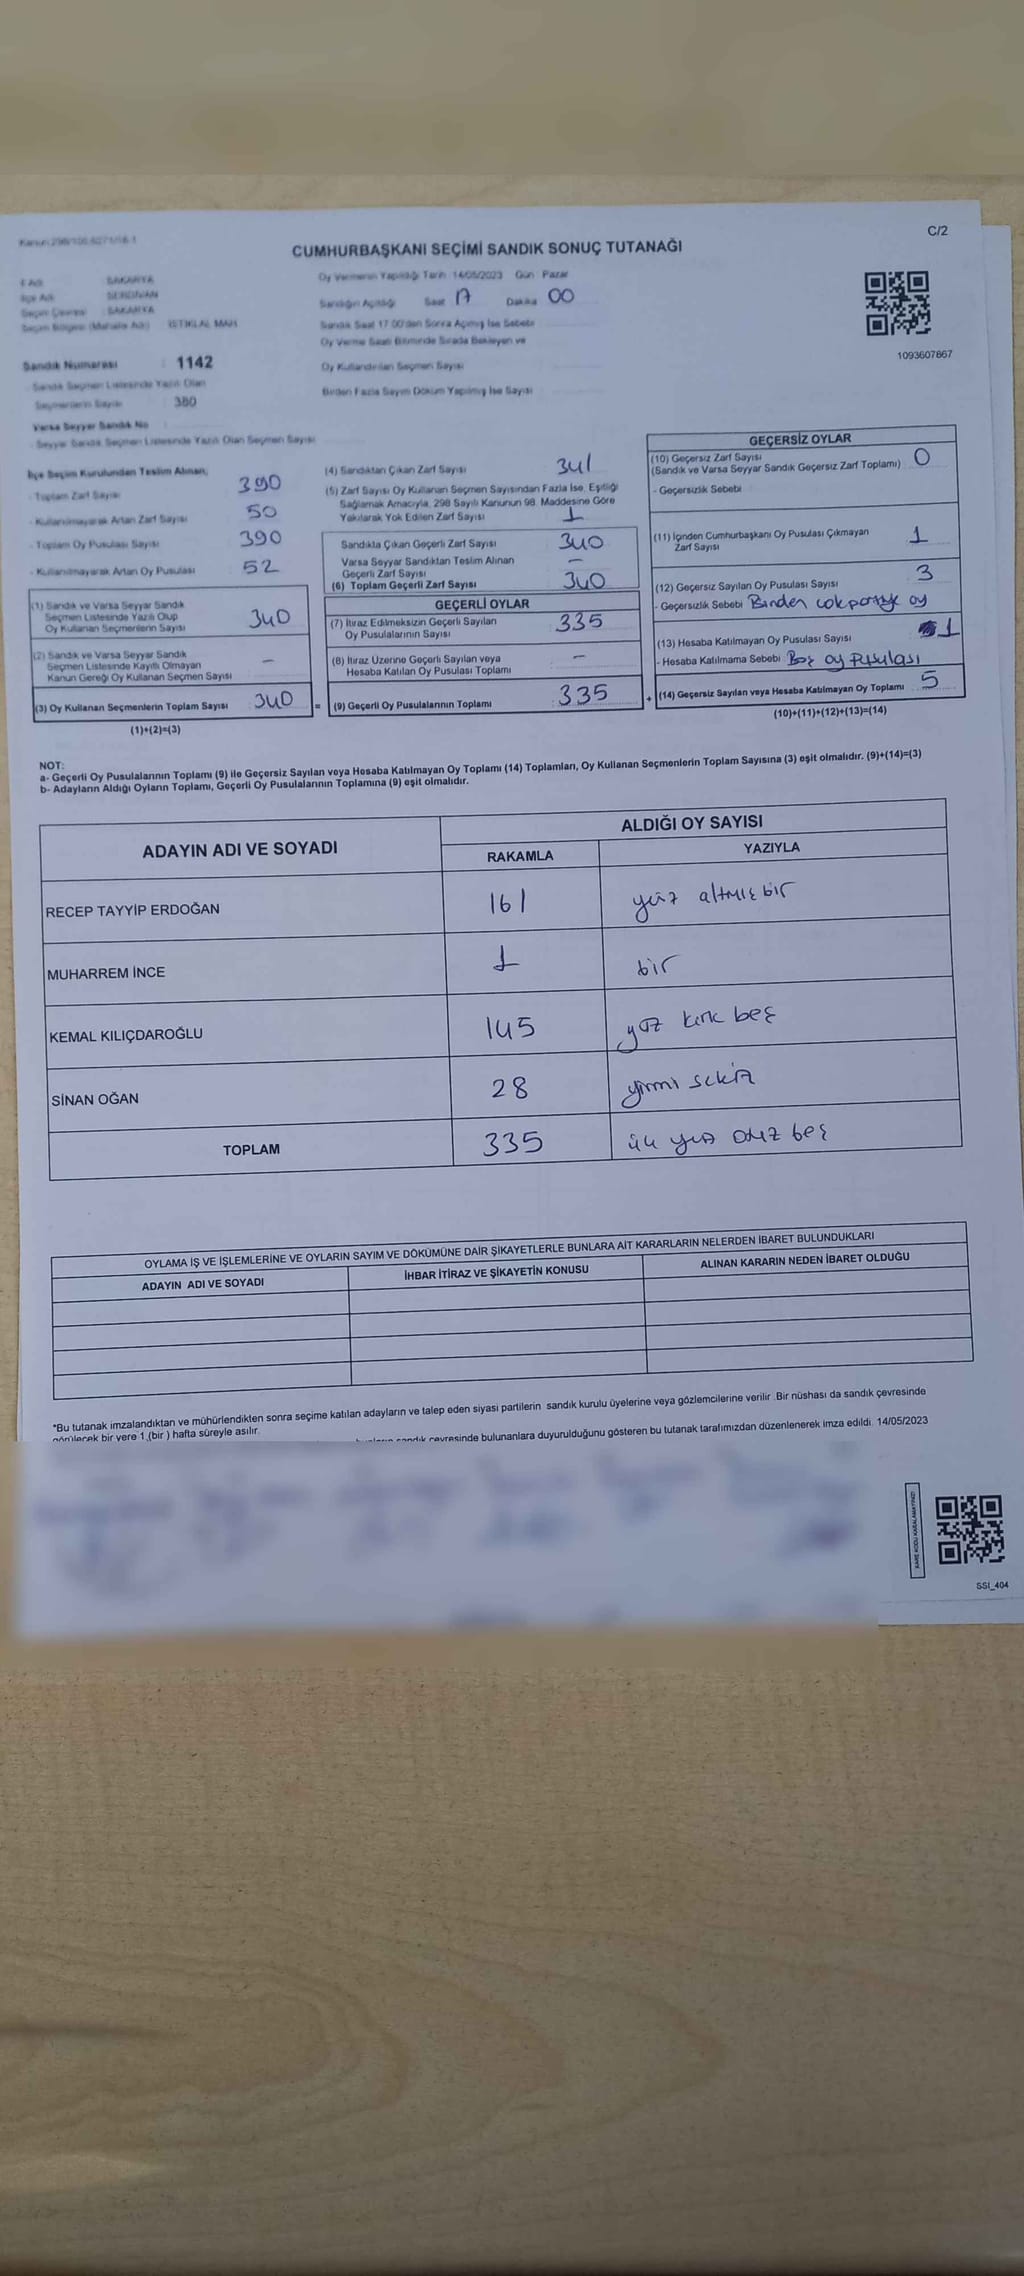 C/2
CUMHURBAŞKANI SEÇİMİ SANDIK SONUÇ TUTANAĞI
İl Adı SAKARYA
İlçe Adı SERDİVAN
Seçim Çevresi SAKARYA
Seçim Bölgesi (Mahalle Adı) İSTİKLAL MAH.
Sandık Numarası : 1142
Sandık Seçmen Listesinde Yazılı Olan
Seçmenlerin Sayısı : 380
Varsa Seyyar Sandık No
- Seyyar Sandık Seçmen Listesinde Yazılı Olan Seçmen Sayısı
Oy Vermenin Yapıldığı Tarih 14/05/2023 Gün Pazar
Sandığın Açıldığı Saat 17 Dakika 00
Sandık Saat 17.00'den Sonra Açılmış İse Sebebi
Oy Verme Saati Bitiminde Sırada Bekleyen ve
Oy Kullandırılan Seçmen Sayısı
Birden Fazla Sayım Döküm Yapılmış İse Sayısı
1093607867
İlçe Seçim Kurulundan Teslim Alınan;
- Toplam Zarf Sayısı 390
- Kullanılmayarak Artan Zarf Sayısı 50
- Toplam Oy Pusulası Sayısı 390
- Kullanılmayarak Artan Oy Pusulası 52
(1) Sandık ve Varsa Seyyar Sandık
Seçmen Listesinde Yazılı Olup
Oy Kullanan Seçmenlerin Sayısı 340
(2) Sandık ve Varsa Seyyar Sandık
Seçmen Listesinde Kayıtlı Olmayan
Kanun Gereği Oy Kullanan Seçmen Sayısı -
(3) Oy Kullanan Seçmenlerin Toplam Sayısı 340
(1)+(2)=(3)
(4) Sandıktan Çıkan Zarf Sayısı 341
(5) Zarf Sayısı Oy Kullanan Seçmen Sayısından Fazla İse, Eşitliği
Sağlamak Amacıyla, 298 Sayılı Kanunun 98. Maddesine Göre
Yakılarak Yok Edilen Zarf Sayısı 1
Sandıkta Çıkan Geçerli Zarf Sayısı 340
Varsa Seyyar Sandıktan Teslim Alınan
Geçerli Zarf Sayısı -
(6) Toplam Geçerli Zarf Sayısı 340
GEÇERLİ OYLAR
(7) İtiraz Edilmeksizin Geçerli Sayılan
Oy Pusulalarının Sayısı 335
(8) İtiraz Üzerine Geçerli Sayılan veya
Hesaba Katılan Oy Pusulası Toplamı -
= (9) Geçerli Oy Pusulalarının Toplamı 335
GEÇERSİZ OYLAR
(10) Geçersiz Zarf Sayısı
(Sandık ve Varsa Seyyar Sandık Geçersiz Zarf Toplamı) 0
- Geçersizlik Sebebi
(11) İçinden Cumhurbaşkanı Oy Pusulası Çıkmayan
Zarf Sayısı 1
(12) Geçersiz Sayılan Oy Pusulası Sayısı 3
- Geçersizlik Sebebi Birden çok partiye oy
(13) Hesaba Katılmayan Oy Pusulası Sayısı 1
- Hesaba Katılmama Sebebi Boş oy pusulası
+ (14) Geçersiz Sayılan veya Hesaba Katılmayan Oy Toplamı 5
(10)+(11)+(12)+(13)=(14)
NOT:
a- Geçerli Oy Pusulalarının Toplamı (9) ile Geçersiz Sayılan veya Hesaba Katılmayan Oy Toplamı (14) Toplamları, Oy Kullanan Seçmenlerin Toplam Sayısına (3) eşit olmalıdır. (9)+(14)=(3)
b- Adayların Aldığı Oyların Toplamı, Geçerli Oy Pusulalarının Toplamına (9) eşit olmalıdır.
ADAYIN ADI VE SOYADI ALDIĞI OY SAYISI
RAKAMLA YAZIYLA
RECEP TAYYİP ERDOĞAN 161 yüz altmış bir
MUHARREM İNCE 1 bir
KEMAL KILIÇDAROĞLU 145 yüz kırk beş
SİNAN OĞAN 28 yirmi sekiz
TOPLAM 335 üç yüz otuz beş
OYLAMA İŞ VE İŞLEMLERİNE VE OYLARIN SAYIM VE DÖKÜMÜNE DAİR ŞİKAYETLERLE BUNLARA AİT KARARLARIN NELERDEN İBARET BULUNDUKLARI
ADAYIN ADI VE SOYADI İHBAR İTİRAZ VE ŞİKAYETİN KONUSU ALINAN KARARIN NEDEN İBARET OLDUĞU
*Bu tutanak imzalandıktan ve mühürlendikten sonra seçime katılan adayların ve talep eden siyasi partilerin sandık kurulu üyelerine veya gözlemcilerine verilir. Bir nüshası da sandık çevresinde
görülecek bir yere 1 (bir) hafta süreyle asılır.
sandık çevresinde bulunanlara duyurulduğunu gösteren bu tutanak tarafımızdan düzenlenerek imza edildi. 14/05/2023
KARE KODU KARALAMAYINIZ!
SSI_404